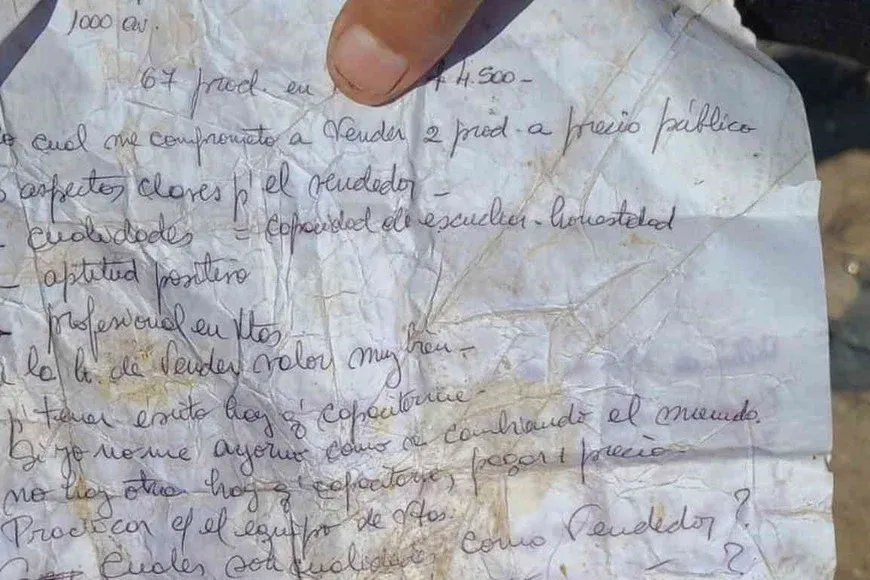 1000 av.
67 prod. en $ 4.500-
o cual me comprometo a Vender 2 prod. a precio público
s aspectos claves p' el vendedor -
- cualidades = capacidad de escuchar - honestidad
- aptitud positiva
- profesional en Vtas
la h. de Vender valor muy bien -
p' tener éxito hay q' capacitarme -
Si yo no me ayorno como va cambiando el mundo.
no hay otra hay q' capacitarse, pagar 1 precio -
Practicar c/ el equipo de Vtas.
Cuales son cualidades como Vendedor ?
- ?